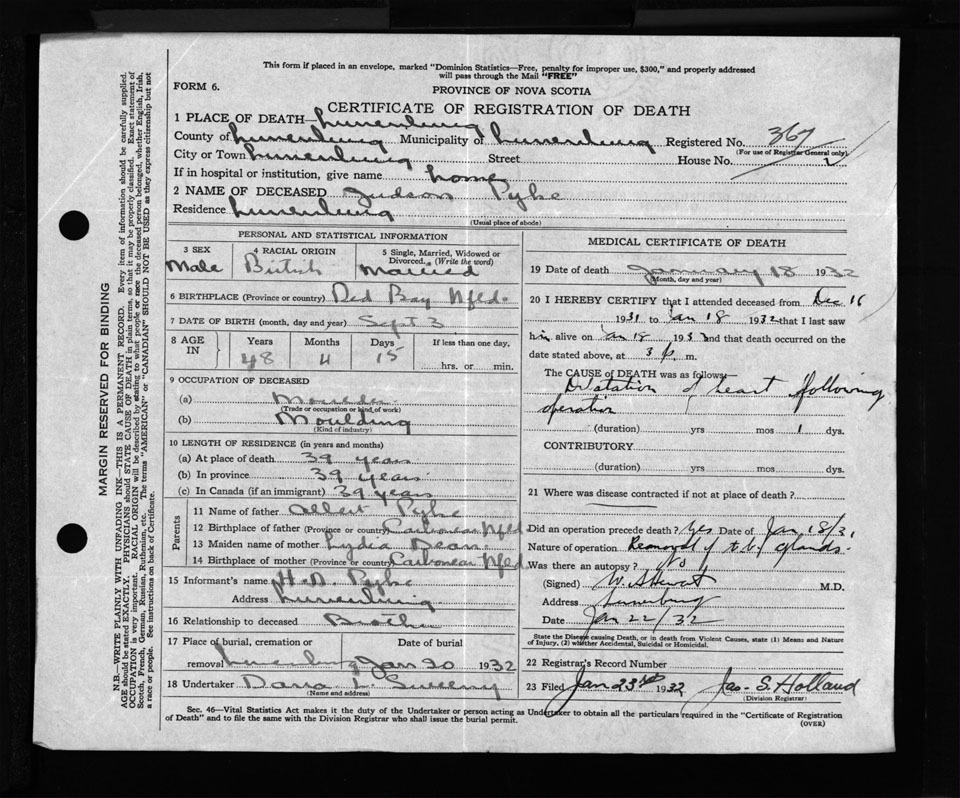 This form if placed in an envelope, marked "Dominion Statistics—Free, penalty for improper use, $300," and properly addressed
will pass through the Mail "FREE"
FORM 6.
PROVINCE OF NOVA SCOTIA
CERTIFICATE OF REGISTRATION OF DEATH
1 PLACE OF DEATH—Lunenburg
County of Lunenburg Municipality of Lunenburg Registered No. 367
(For use of Registrar General only)
City or Town Lunenburg Street House No.
If in hospital or institution, give name home
2 NAME OF DECEASED Judson Pyke
Residence Lunenburg
(Usual place of abode)
PERSONAL AND STATISTICAL INFORMATION
3 SEX 4 RACIAL ORIGIN 5 Single, Married, Widowed or
Divorced. (Write the word)
Male British Married
6 BIRTHPLACE (Province or country) Red Bay Nfld.
7 DATE OF BIRTH (month, day and year) Sept 3
8 AGE IN Years Months Days If less than one day,
48 4 15 hrs. or min.
9 OCCUPATION OF DECEASED
(a) Moulder
(Trade or occupation or kind of work)
(b) Moulding
(Kind of industry)
10 LENGTH OF RESIDENCE (in years and months)
(a) At place of death 39 years
(b) In province 39 years
(c) In Canada (if an immigrant) 39 years
Parents
11 Name of father Albert Pyke
12 Birthplace of father (Province or country) Carbonear Nfld
13 Maiden name of mother Lydia Dean
14 Birthplace of mother (Province or country) Carbonear Nfld.
15 Informant's name H. D. Pyke
Address Lunenburg
16 Relationship to deceased Brother
17 Place of burial, cremation or Date of burial
removal Lunenburg Jan 20 1932
18 Undertaker L Sweeny
(Name and address)
MEDICAL CERTIFICATE OF DEATH
19 Date of death January 18 1932
(Month, day and year)
20 I HEREBY CERTIFY that I attended deceased from Dec 16
1931 to Jan 18 1932 that I last saw
him alive on Jan 18 1932 and that death occurred on the
date stated above, at 3 p. m.
The CAUSE OF DEATH was as follows:
Dilatation of heart following
operation
(duration) yrs mos 1 dys.
CONTRIBUTORY
(duration) yrs mos dys.
21 Where was disease contracted if not at place of death?
Did an operation precede death? Yes Date of Jan 18/3
Nature of operation Removal of t.b. glands.
Was there an autopsy? No
(Signed) M.D.
Address Lunenburg
Date Jan 22/32
State the Disease causing Death, or in death from Violent Causes, state (1) Means and Nature
of Injury, (2) whether Accidental, Suicidal or Homicidal.
22 Registrar's Record Number
23 Filed Jan 23rd 1932 Jas. S. Holland
(Division Registrar)
Sec. 46—Vital Statistics Act makes it the duty of the Undertaker or person acting as Undertaker to obtain all the particulars required in the "Certificate of Registration
of Death" and to file the same with the Division Registrar who shall issue the burial permit.
(OVER)
MARGIN RESERVED FOR BINDING
N.B.—WRITE PLAINLY WITH UNFADING INK—THIS IS A PERMANENT RECORD. Every item of information should be carefully supplied.
AGE should be stated EXACTLY. PHYSICIANS should STATE CAUSE OF DEATH in plain terms, so that it may be properly classified. Exact statement of
OCCUPATION is very important. RACIAL ORIGIN will be described by stating to what people or race the deceased person belonged, whether English, Irish,
Scotch, French, German, Russian, Ruthenian, etc. The terms "AMERICAN" or "CANADIAN" SHOULD NOT BE USED as they express citizenship but not
a race or people. See instructions on back of Certificate.